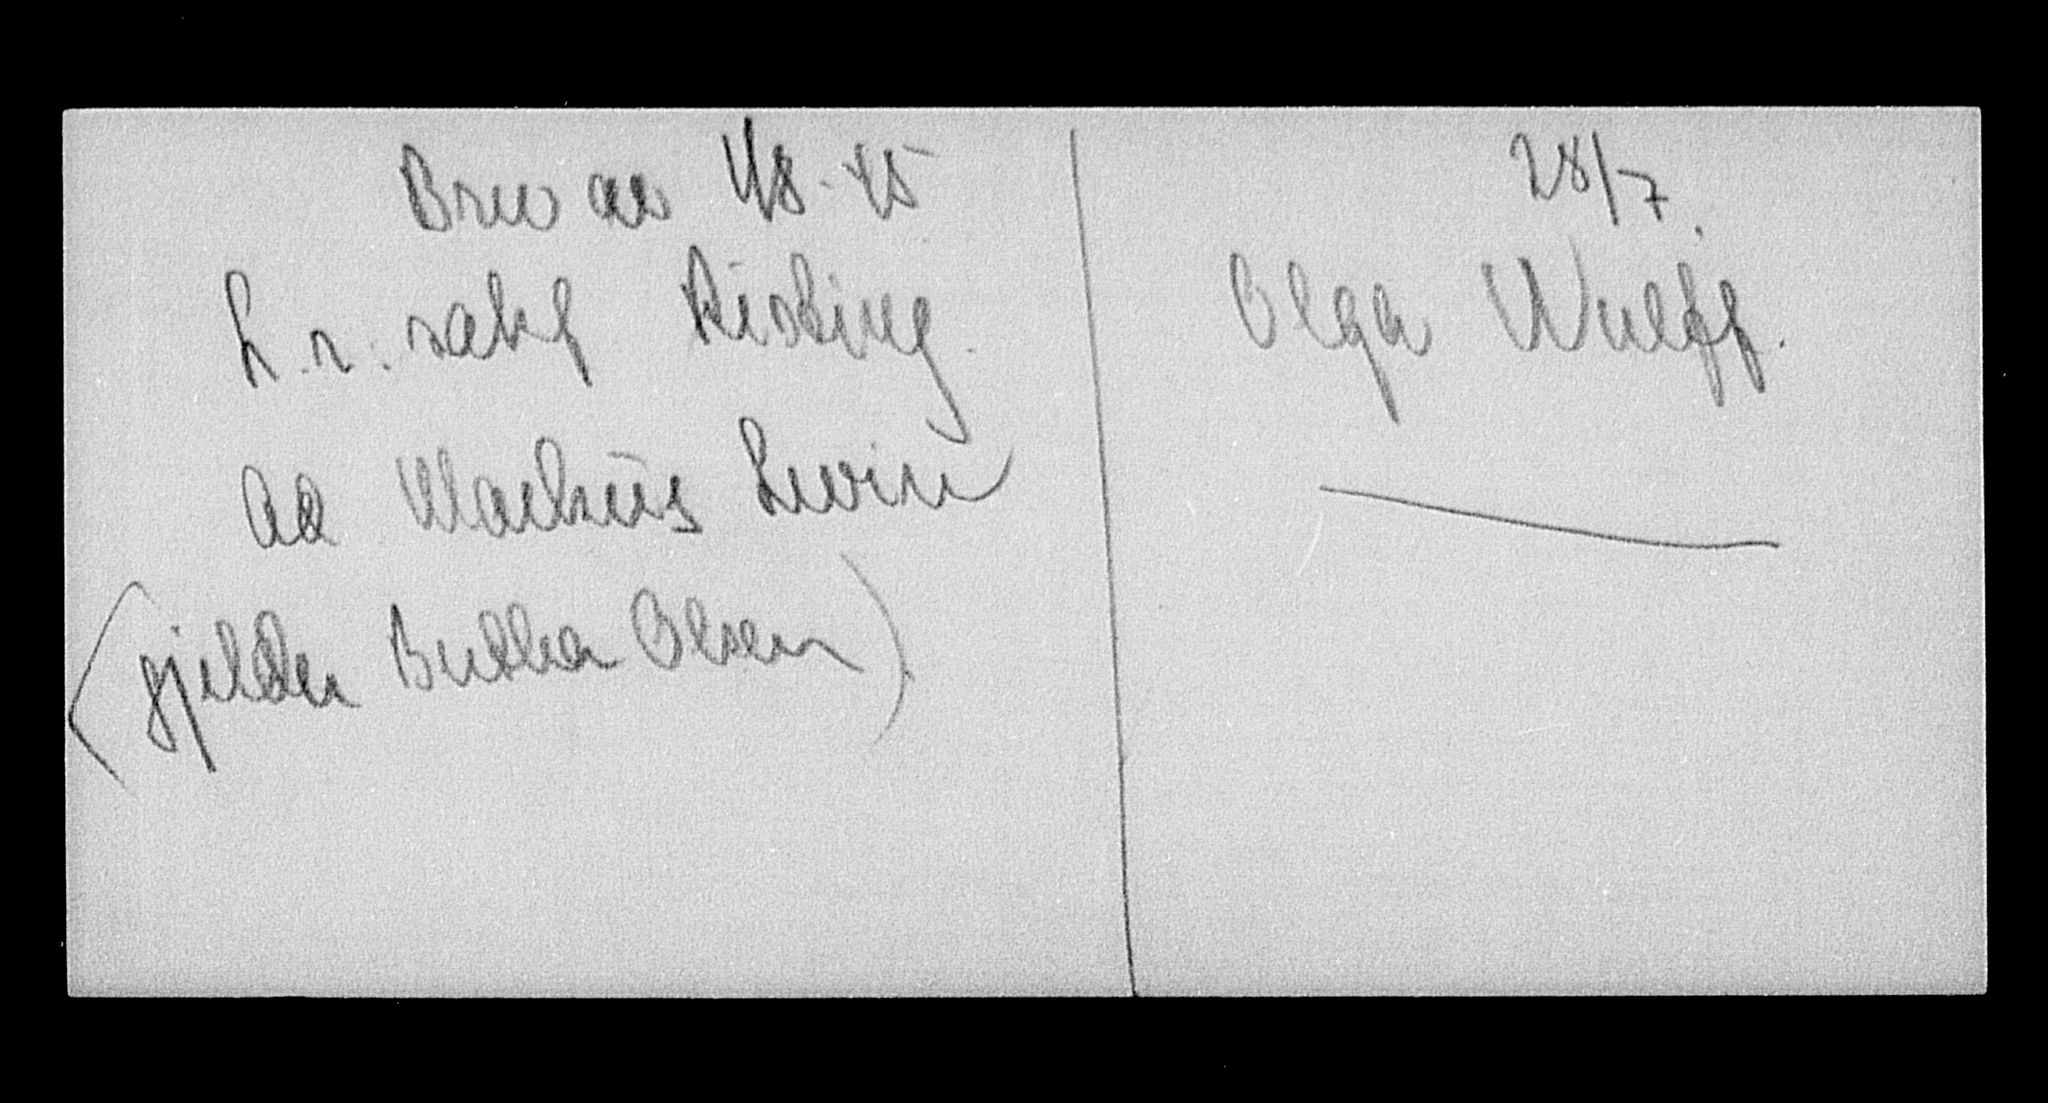 Brev av 4/8-45
L.r.sakf Risting.
ad Markus Levin
(gjelder Bertha Olsen)
28/7.
Olga Wulff.